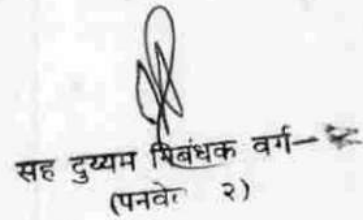 सह दुय्यम निबंधक वर्ग-
(पनवेल २)